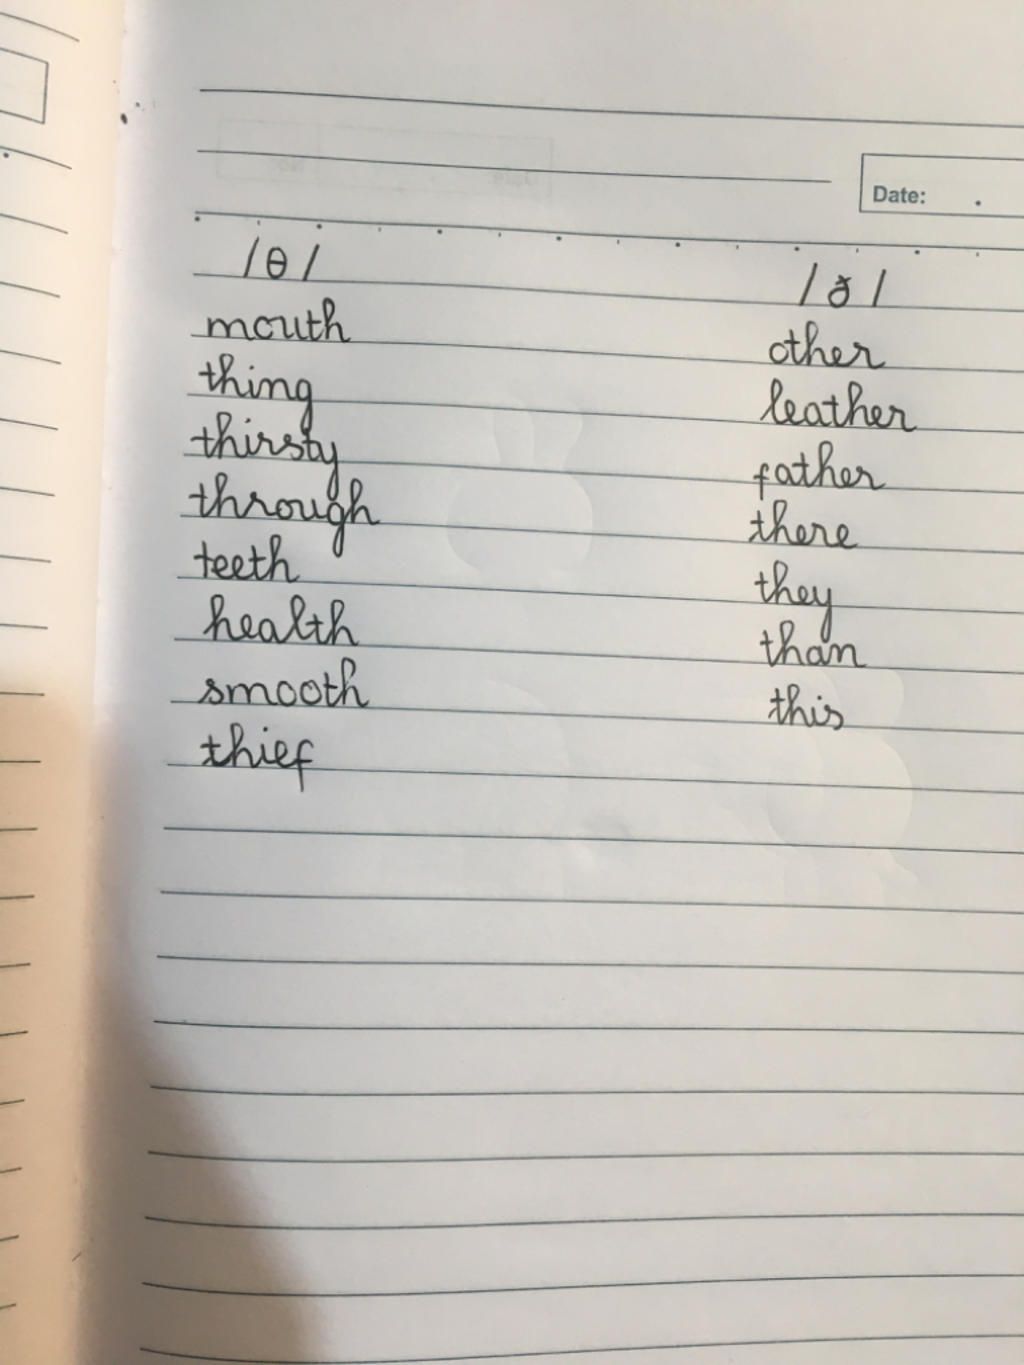 Date:
/θ/
/ð/
mouth
thing
thirsty
through
teeth
health
smooth
thief
other
leather
father
there
they
than
this